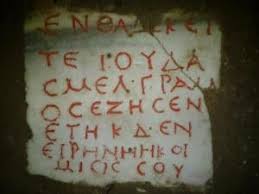 ΕΝΘΑΔΕΚΕΙ
ΤΕ ΙΟΥΔΑ
C ΜΕΛΓΡΑΜ
ΟC ΕΖΗCΕΝ
ΕΤΗ ΚΔ ΕΝ
ΕΙΡΗΝΗ Η ΚΟΙ
CΟΥ